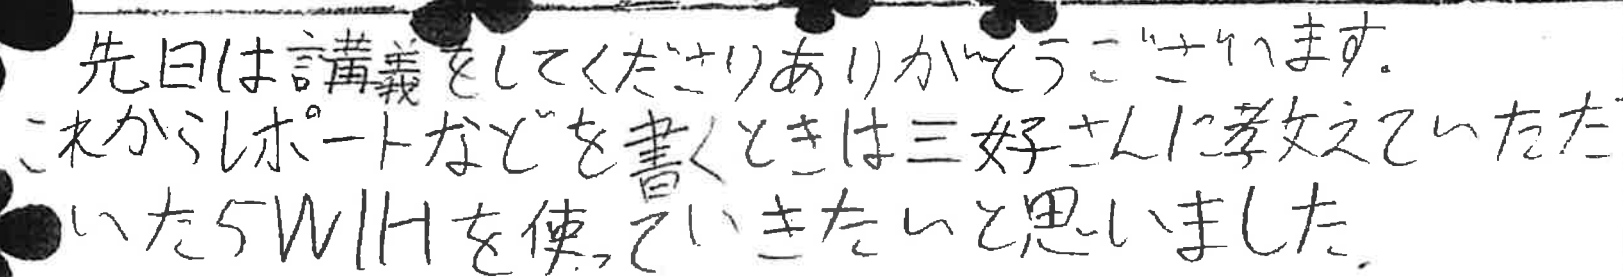 先日は講義をしてくださりありがとうございます.
これからレポートなどを書くときは三好さんに教えていただ
いた5W1Hを使っていきたいと思いました.